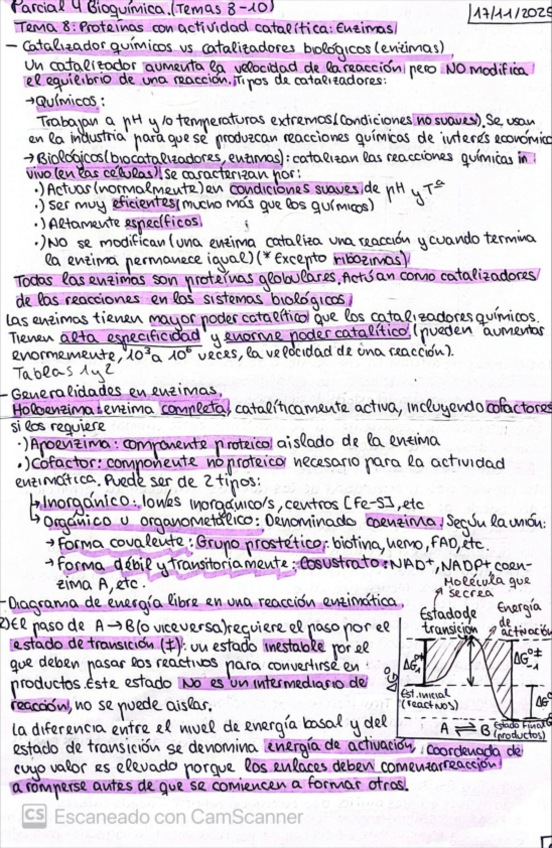 Parcial 4 Bioquímica. (Temas 8-10)
17/11/2025
Tema 8: Proteínas con actividad catalítica: Enzimas
- Catalizador químicos vs catalizadores biológicos (enzimas)
Un catalizador aumenta la velocidad de la reacción pero NO modifica
el equilibrio de una reacción. Tipos de catalizadores:
→ Químicos:
Trabajan a pH y/o temperaturas extremos (condiciones no suaves). Se usan
en la industria para que se produzcan reacciones químicas de interés económico
→ Biológicos (biocatalizadores, enzimas): catalizan las reacciones químicas in
vivo (en las células). Se caracterizan por:
·) Actuar (normalmente) en condiciones suaves de pH y Tª
·) Ser muy eficientes (mucho más que los químicos)
·) Altamente específicos.
·) NO se modifican (una enzima cataliza una reacción y cuando termina
la enzima permanece igual) (* Excepto ribozimas)
Todas las enzimas son proteínas globulares. Actúan como catalizadores
de las reacciones en los sistemas biológicos.
Las enzimas tienen mayor poder catalítico que los catalizadores químicos.
Tienen alta especificidad y enorme poder catalítico. (pueden aumentar
enormemente, 10³ a 10⁶ veces, la velocidad de una reacción).
Tablas 1 y 2
- Generalidades en enzimas.
Holoenzima: enzima completa, catalíticamente activa, incluyendo cofactores
si los requiere
·) Apoenzima: componente proteico aislado de la enzima
·) Cofactor: componente no proteico necesario para la actividad
enzimática. Puede ser de 2 tipos:
↳ Inorgánico: iones inorgánico/s, centros [Fe-S], etc
↳ Orgánico u organometálico: Denominado coenzima. Según la unión:
→ Forma covalente: Grupo prostético: biotina, hemo, FAD, etc.
→ Forma débil y transitoriamente: Cosustrato: NAD⁺, NADP⁺ coen-
zima A, etc.
Molécula que
se crea
- Diagrama de energía libre en una reacción enzimática.
El paso de A → B (o viceversa) requiere el paso por el
estado de transición (‡): un estado inestable por el
que deben pasar los reactivos para convertirse en
productos. Este estado No es un intermediario de
reacción, no se puede aislar.
La diferencia entre el nivel de energía basal y del
estado de transición se denomina energía de activación,
cuyo valor es elevado porque los enlaces deben comenzar
a romperse antes de que se comiencen a formar otros.
Estado de
transición
Energía
de activación
Est. inicial
(reactivos)
A ⇌ B
Estado Final
(productos)
Coordenada de
reacción